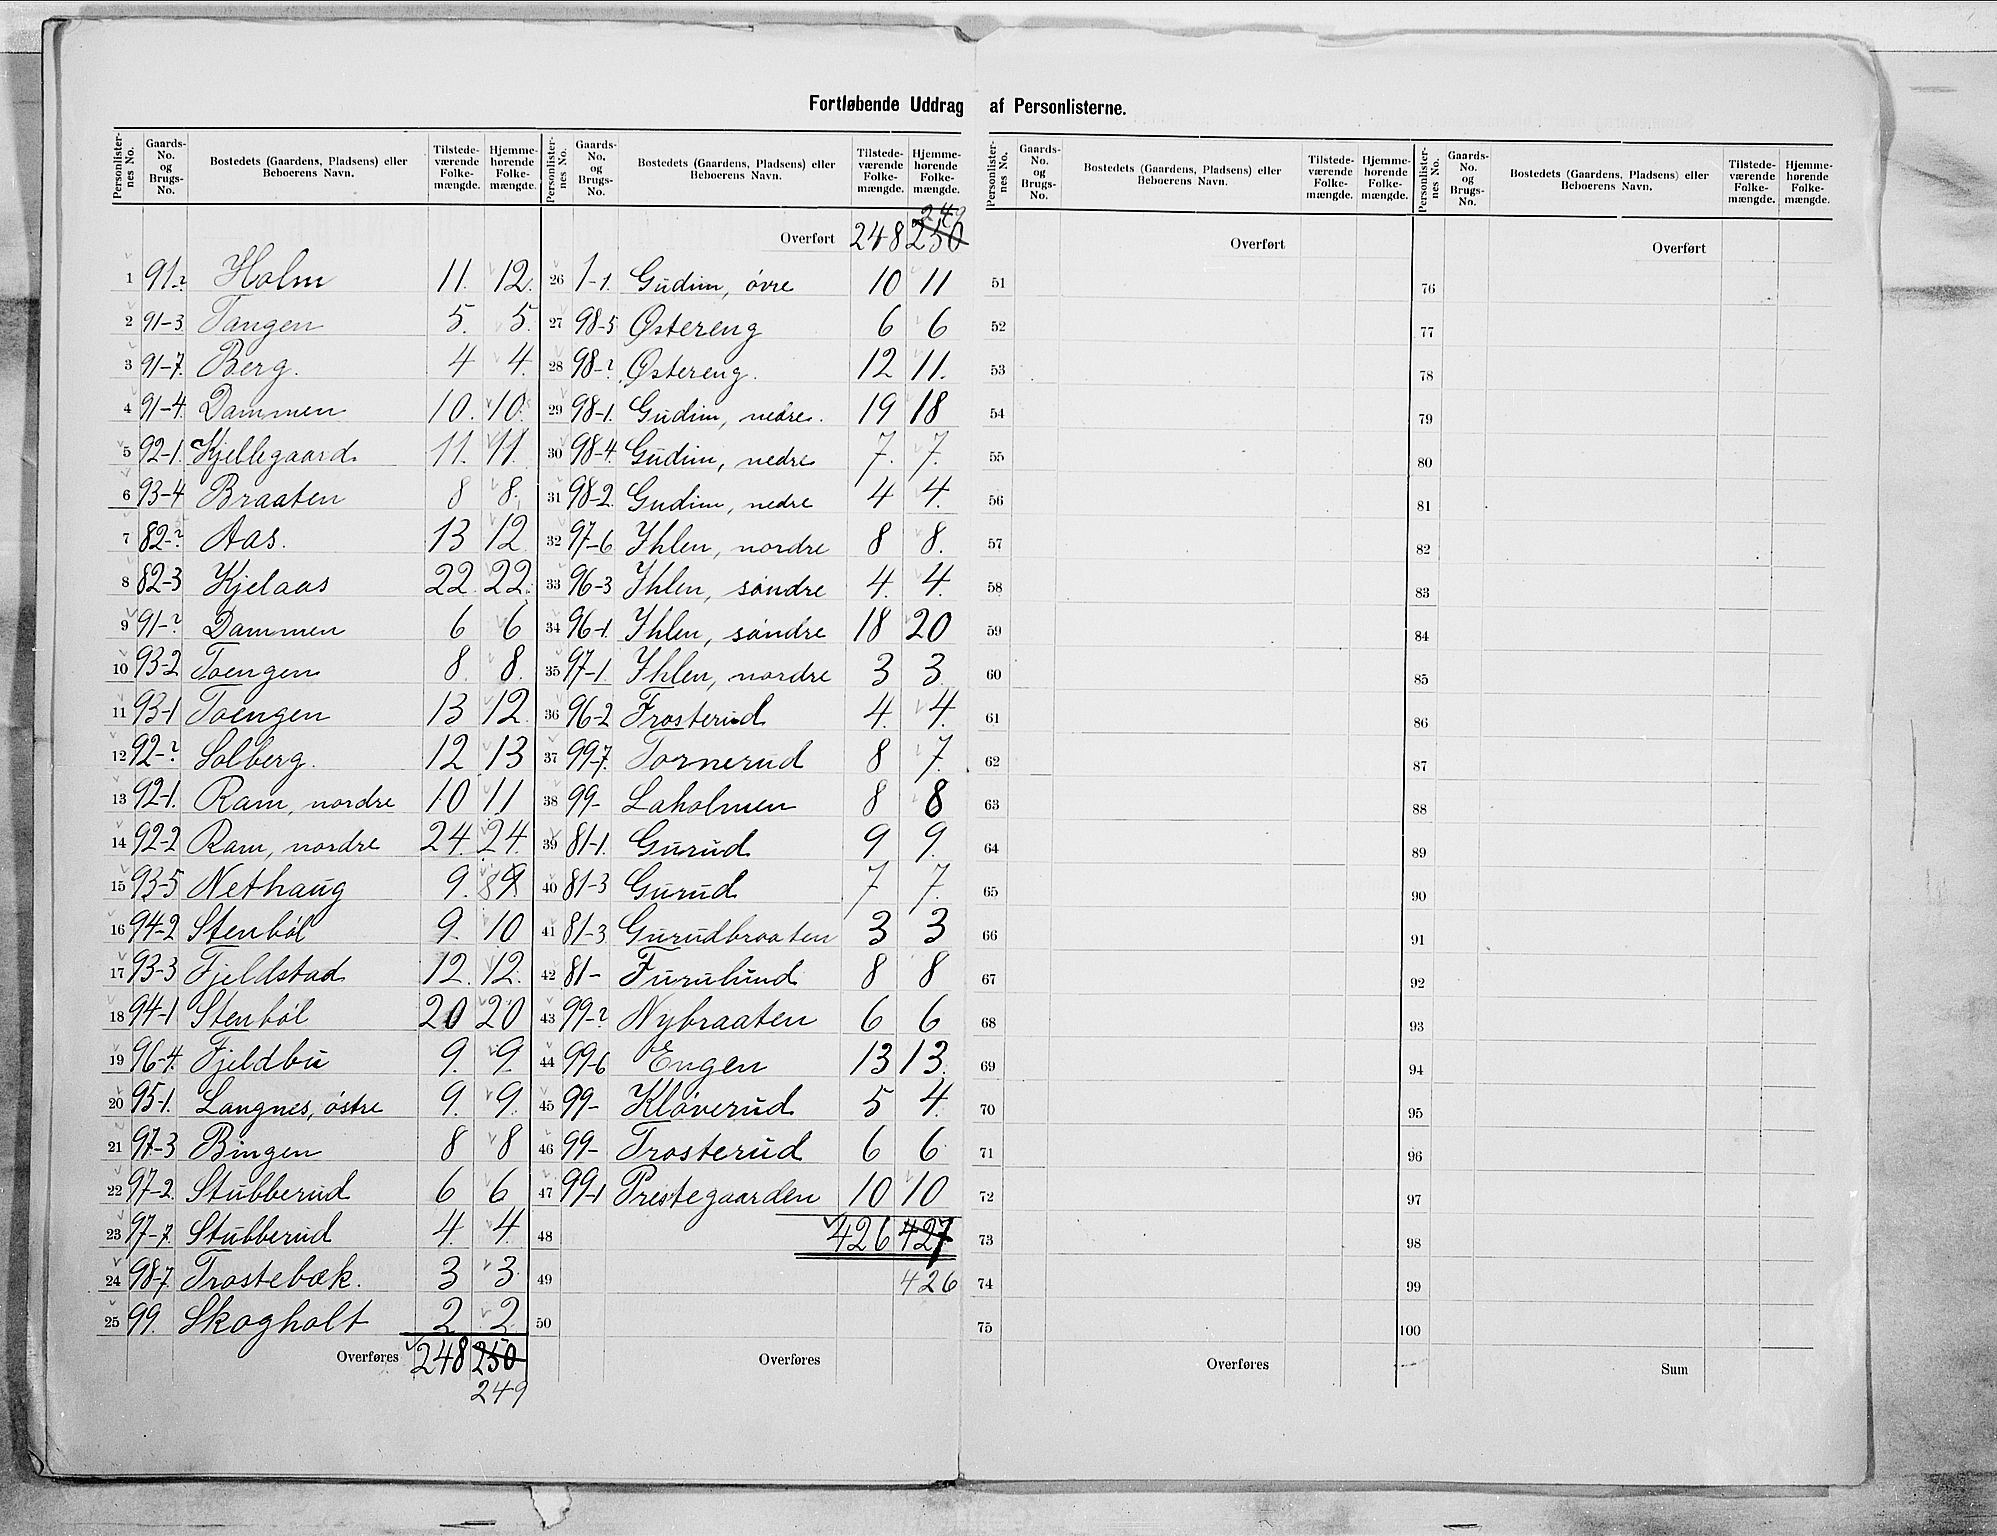 Fortløbende Uddrag af Personlisterne.
Personlister-nes No. Gaards-No. og Brugs-No. Bostedets (Gaardens, Pladsens) eller Beboerens Navn. Tilstede-værende Folke-mængde. Hjemme-hørende Folke-mængde.
Personlister-nes No. Gaards-No. og Brugs-No. Bostedets (Gaardens, Pladsens) eller Beboerens Navn. Tilstede-værende Folke-mængde. Hjemme-hørende Folke-mængde.
1 91-? Holm 11. 12.
2 91-3 Tangen 5. 5.
3 91-7. Berg. 4 4.
4 91-4. Dammen 10. 10.
5 92-1. Kjellegaard 11. 11.
6 93-4 Braaten 8 8.
7 82-? Aas. 13 12
8 82-3 Kjelaas 22 22.
9 91-? Dammen 6 6
10 93-2 Toengen 8. 8.
11 93-1 Toengen 13 12
12 92-? Solberg. 12 13
13 92-1. Ram, nordre 10 11
14 92-2 Ram, nordre 24. 24.
15 93-5 Nethaug 9. 89
16 94-2 Stenböl 9. 10
17 93-3 Fjeldstad 12. 12.
18 94-1 Stenböl 20 20
19 96-4. Fjeldbu 9. 9.
20 95-1. Langnes, östre 9. 9.
21 97-3 Bingen 8 8
22 97-2. Stubberud 6 6
23 97-7. Stubberud 4. 4.
24 98-7. Trostebæk. 3 3.
25 99. Skogholt 2 2
Overføres 248 250
249
249
Overført 248 250
26 1-1. Gudim, övre 10 11
27 98-5 Östereng 6 6
28 98-? Östereng. 12 11.
29 98-1. Gudim, nedre. 19 18
30 98-4. Gudim, nedre 7. 7.
31 98-2. Gudim, nedre 4 4.
32 97-6 Ihlen, nordre 8 8.
33 96-3 Ihlen, söndre 4. 4.
34 96-1. Ihlen, söndre 18 20
35 97-1. Ihlen, nordre 3 3
36 96-2 Frosterud 4. 4.
37 99-7. Tornerud 8 7.
38 99- Laholmen 8 8
39 81-1. Gurud 9 9.
40 81-3 Gurud 7 7.
41 81-3 Gurudbraaten 3 3
42 81- Furulund 8 8
43 99-? Nybraaten 6 6
44 99-6 Engen 13 13.
45 99- Klöverud 5 4.
46 99- Trosterud 6 6
47 99-1 Prestegaarden 10 10
48 426 427
49 426
50
Overføres
Personlister-nes No. Gaards-No. og Brugs-No. Bostedets (Gaardens, Pladsens) eller Beboerens Navn. Tilstede-værende Folke-mængde. Hjemme-hørende Folke-mængde.
Overført
51
52
53
54
55
56
57
58
59
60
61
62
63
64
65
66
67
68
69
70
71
72
73
74
75
Overføres
Personlister-nes No. Gaards-No. og Brugs-No. Bostedets (Gaardens, Pladsens) eller Beboerens Navn. Tilstede-værende Folke-mængde. Hjemme-hørende Folke-mængde.
Overført
76
77
78
79
80
81
82
83
84
85
86
87
88
89
90
91
92
93
94
95
96
97
98
99
100
Sum